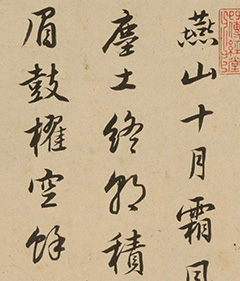 燕山十月霜風
塵土終朝積
眉鼓櫂空餘